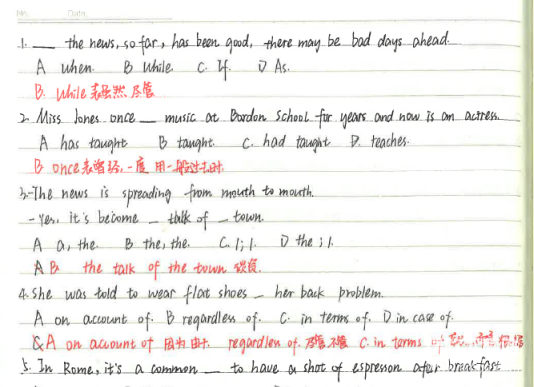 No. Date.
1. ___ the news, so far, has been good, there may be bad days ahead.
A when. B While. C. If. D As.
B. While表虽然 尽管
2. Miss Jones once ___ music at Bordon School for years and now is an actress.
A has taught B taught. C. had taught D. teaches.
B once表曾经,一度 用一般过去时.
3. -The news is spreading from mouth to mouth.
- Yes, it's become _ talk of _ town.
A a, the. B the, the. C. /; /. D the; /.
A B the talk of the town 谈资.
4. She was told to wear flat shoes _ her back problem.
A on account of. B regardless of. C. in terms of. D in case of.
A on account of 因为 由于. regardless of. 尽管 不管 C. in terms of
5. In Rome, it's a common _ to have a shot of espresson after breakfast